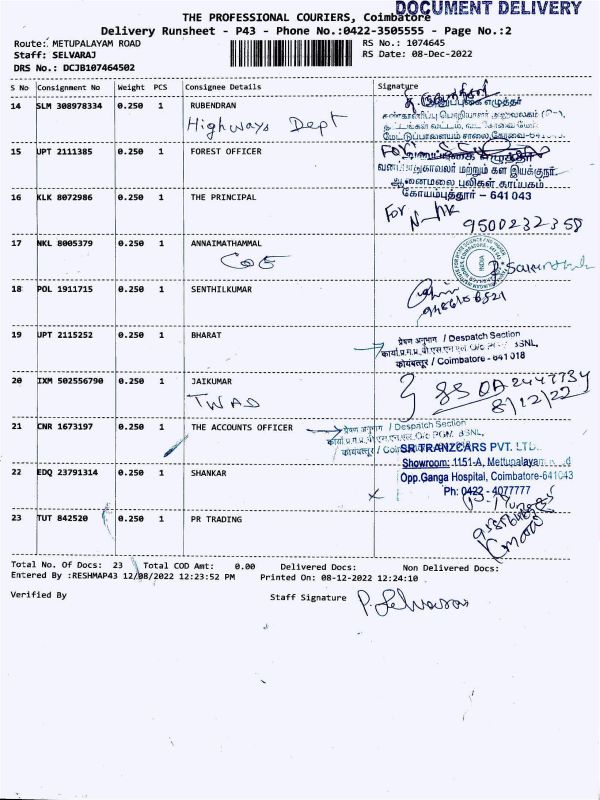 DOCUMENT DELIVERY
THE PROFESSIONAL COURIERS, Coimbatore
Delivery Runsheet - P43 - Phone No.:0422-3505555 - Page No.:2
Route: METUPALAYAM ROAD
RS No.: 1074645
Staff: SELVARAJ
RS Date: 08-Dec-2022
DRS No.: DCJB107464502
S No Consignment No Weight PCS Consignee Details Signature
14 SLM 308978334 0.250 1 RUBENDRAN
Highways Dept
15 UPT 2111385 0.250 1 FOREST OFFICER
For
வனப்பாதுகாவலர் மற்றும் கள இயக்குநர்
ஆனைமலை புலிகள் காப்பகம்
கோயம்புத்தூர் - 641 043
16 KLK 8072986 0.250 1 THE PRINCIPAL
For
9500232358
17 NKL 8005379 0.250 1 ANNAIMATHAMMAL
COE
INDIA
18 POL 1911715 0.250 1 SENTHILKUMAR
19 UPT 2115252 0.250 1 BHARAT
प्रेषण अनुभाग / Despatch Section
BSNL,
कोयंबत्तूर / Coimbatore - 641 018
20 IXM 502556790 0.250 1 JAIKUMAR
TWAD
8/12/22
21 CNR 1673197 0.250 1 THE ACCOUNTS OFFICER
प्रेषण अनुभाग / Despatch Section
BSNL,
कोयंबत्तूर /
SR TRANZCARS PVT. LTD.
Showroom: 1151-A, Mettupalayam
22 EDQ 23791314 0.250 1 SHANKAR
Opp.Ganga Hospital, Coimbatore-641043
Ph: 0422 - 4077777
23 TUT 842520 0.250 1 PR TRADING
Total No. Of Docs: 23 Total COD Amt: 0.00 Delivered Docs: Non Delivered Docs:
Entered By :RESHMAP43 12/08/2022 12:23:52 PM Printed On: 08-12-2022 12:24:10
Verified By
Staff Signature P. Selvaraj